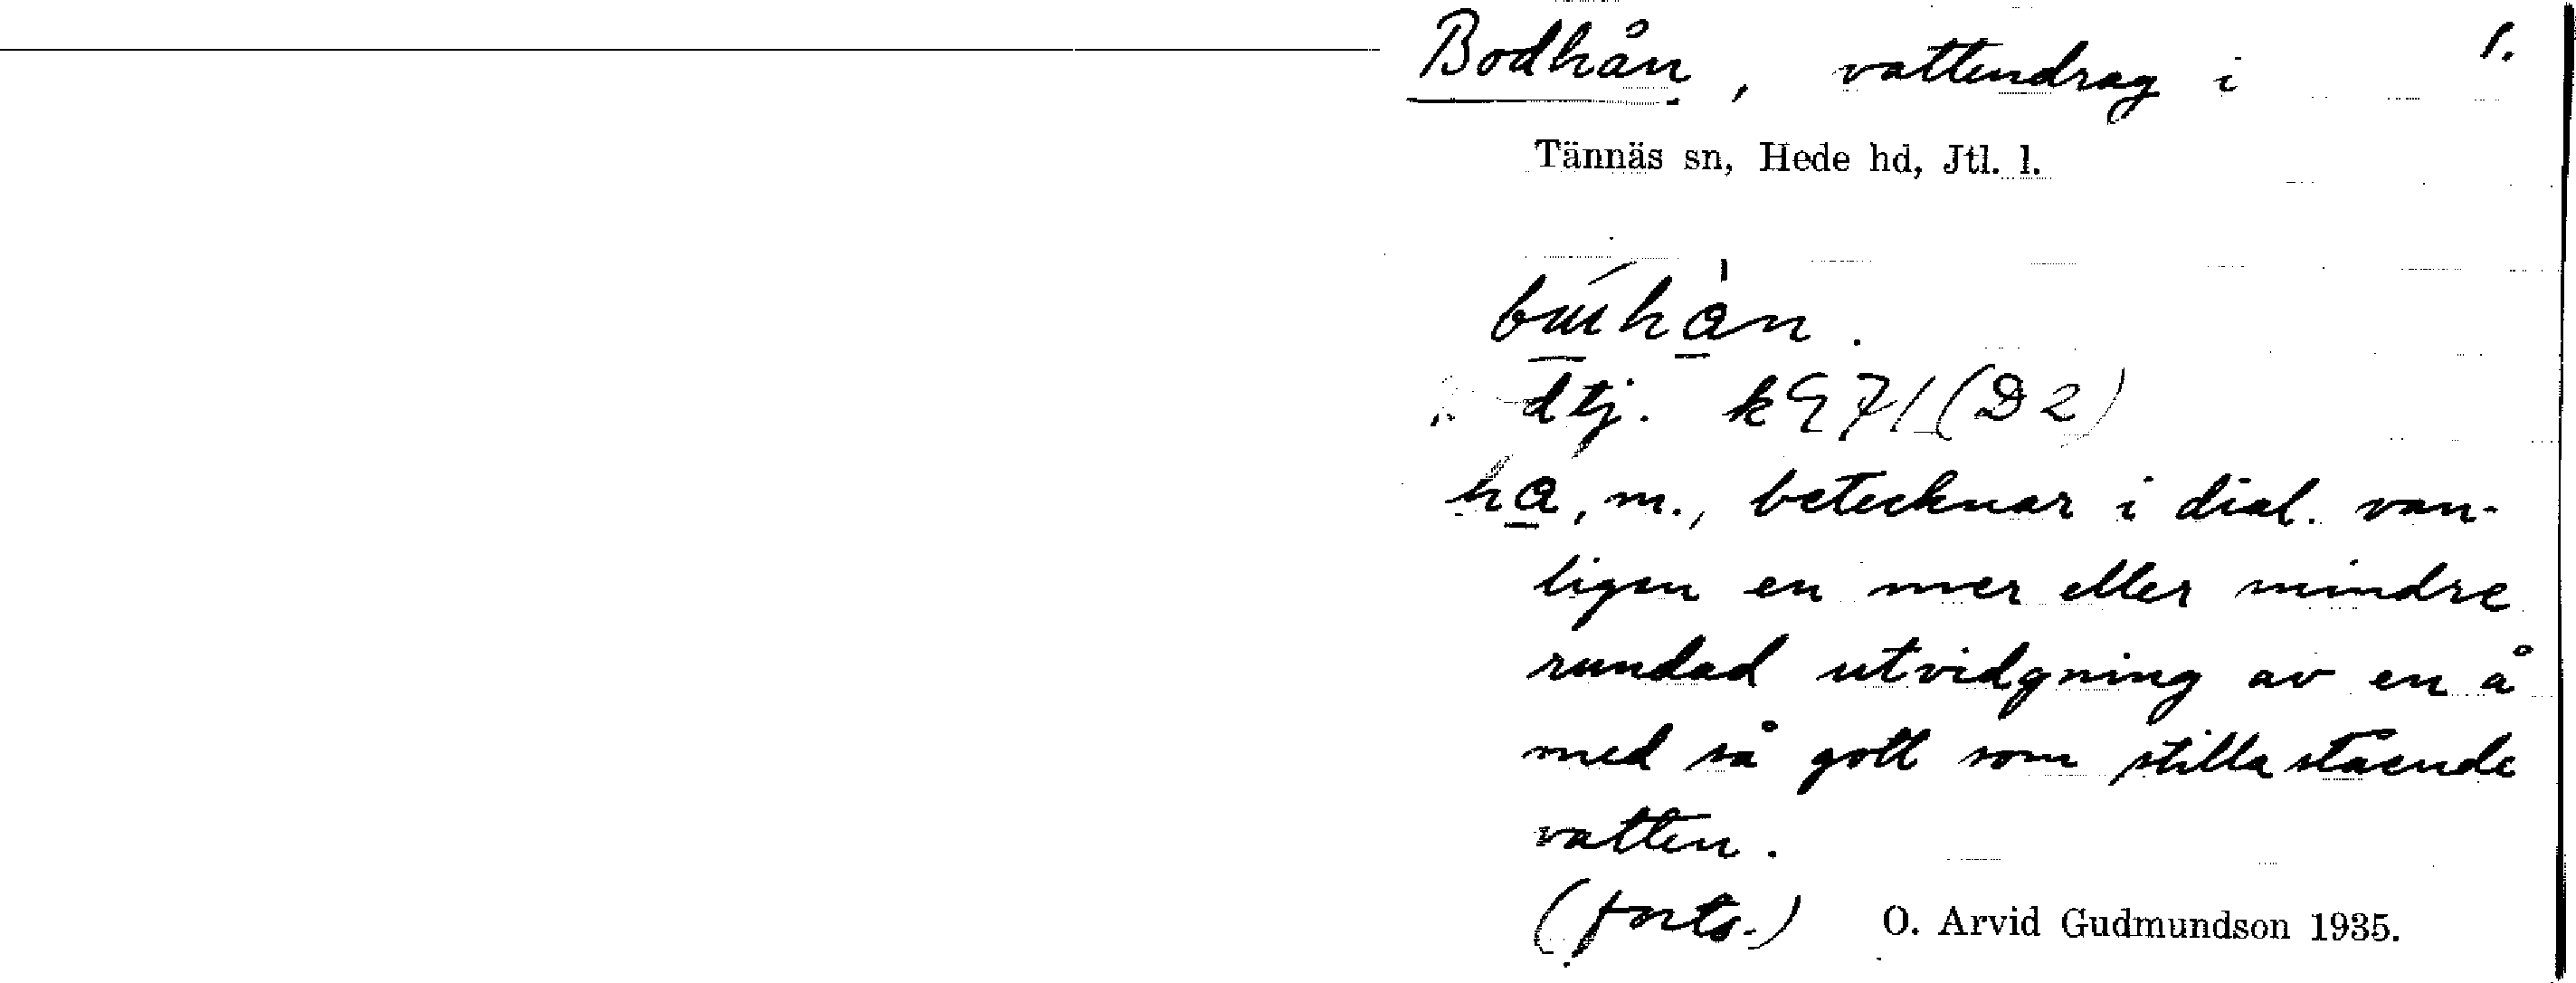 Bodhån, vattendrag i 1.
Tännäs sn, Hede hd, Jtl. l.
dtj. k971 (D2)
ha, m., betecknar i dial. van-
ligen en mer eller mindre
rundad utvidgning av en å
med så gott som stillastående
vatten.
(forts.) O. Arvid Gudmundson 1935.